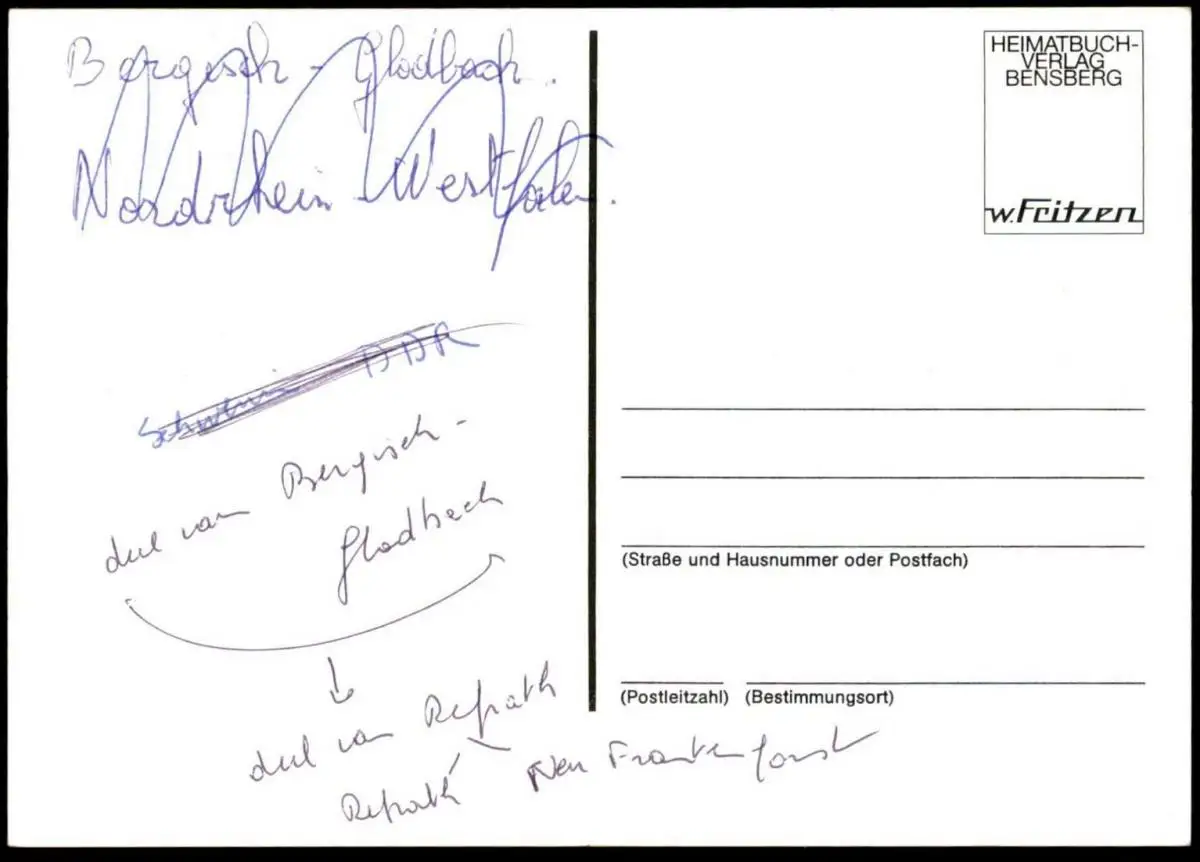 Bergisch - Gladbach.
Noordrhein - Westfalen.
Schwerin DDR
deel van Bergisch -
Gladbach
deel van Refrath
Refrath
Neu Frankenforst
HEIMATBUCH-
VERLAG
BENSBERG
W. Fritzen
(Straße und Hausnummer oder Postfach)
(Postleitzahl) (Bestimmungsort)